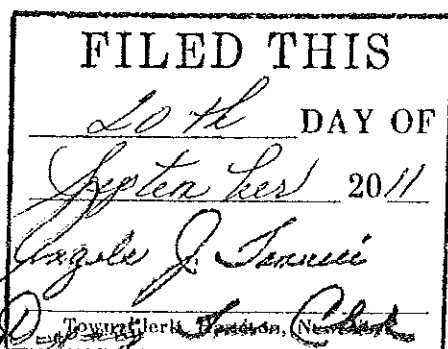 FILED THIS
20th DAY OF
September 2011
Angela J.
Deputy Town Clerk
Town Clerk,